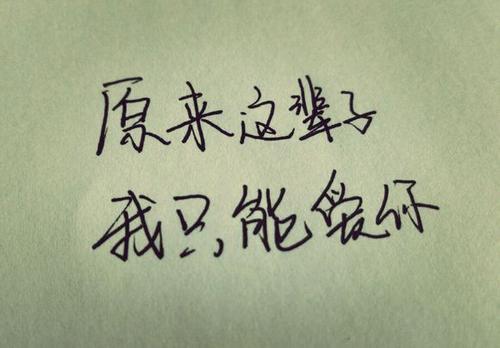 原来这辈子
我只能爱你